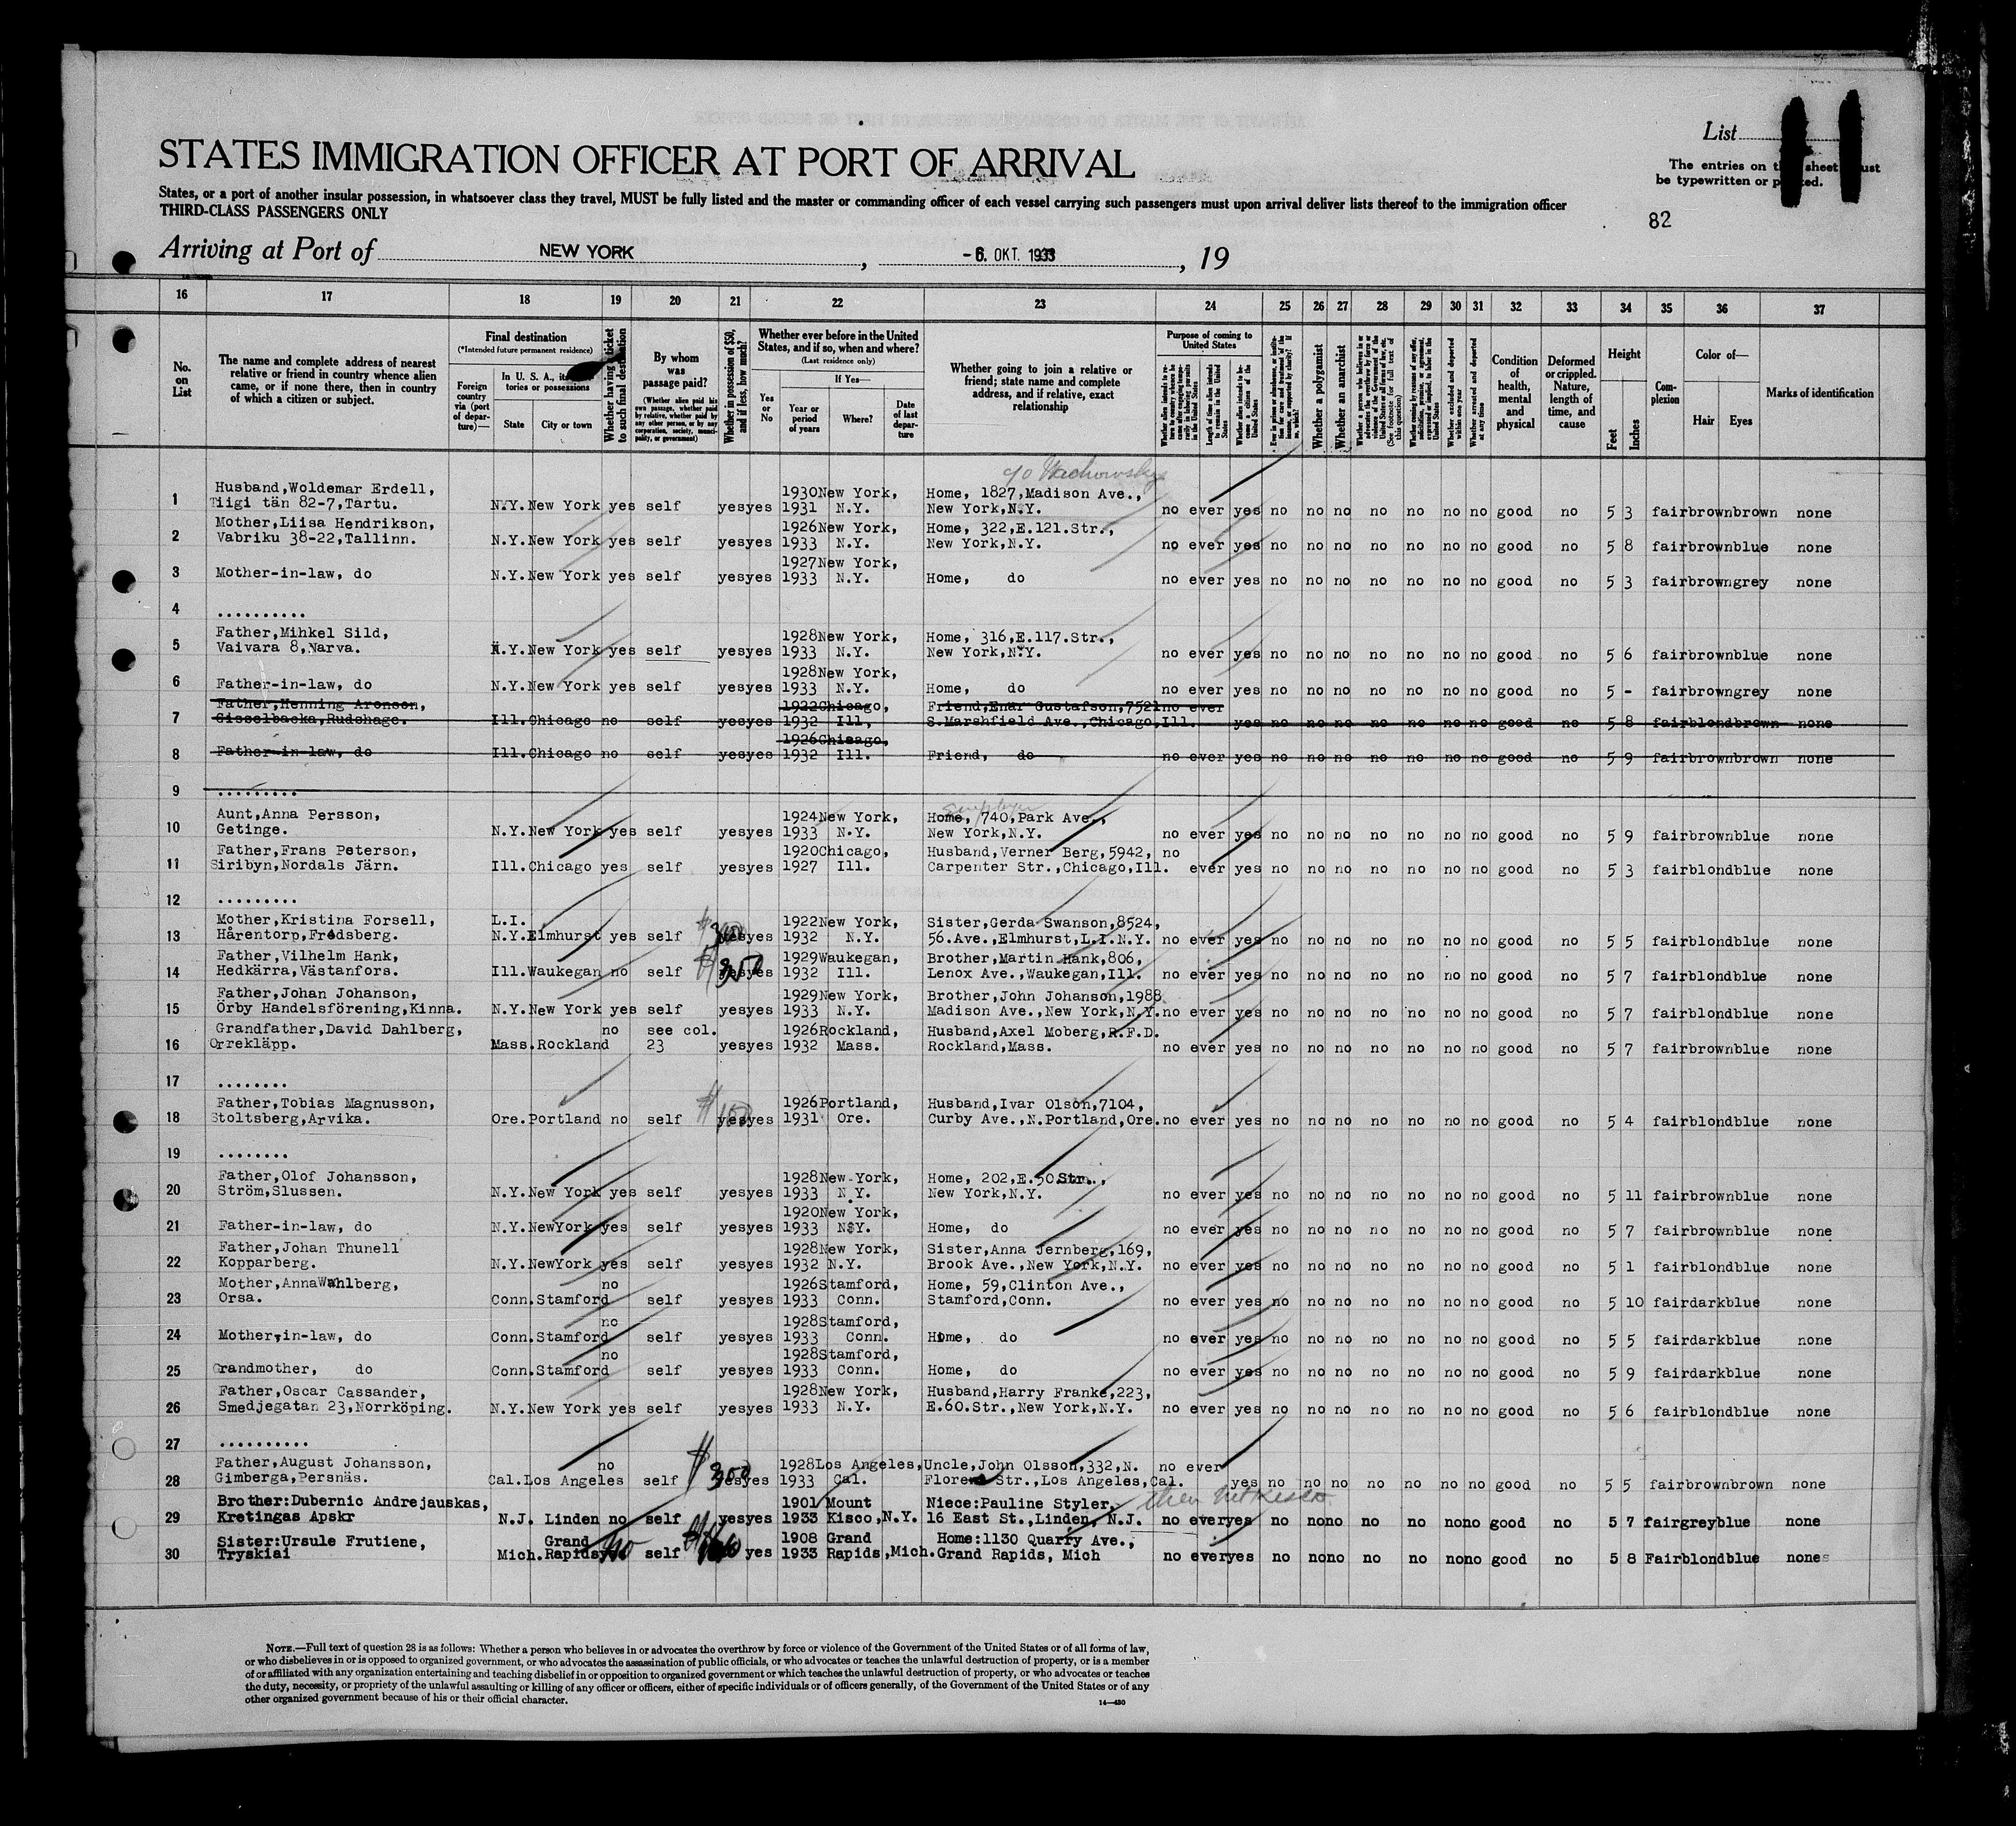 List
STATES IMMIGRATION OFFICER AT PORT OF ARRIVAL
The entries on sheet
be typewritten or
States, or a port of another insular possession, in whatsoever class they travel, MUST be fully listed and the master or commanding officer of each vessel carrying such passengers must upon arrival deliver lists thereof to the immigration officer
THIRD-CLASS PASSENGERS ONLY
82
Arriving at Port of NEW YORK, -6. OKT. 1933, 19
16 17 18 19 20 21 22 23 24 25 26 27 28 29 30 31 32 33 34 35 36 37
No. on List
The name and complete address of nearest relative or friend in country whence alien came, or if none there, then in country of which a citizen or subject.
Final destination
(*Intended future permanent residence)
Foreign country via (port of departure)—
In U. S. A., its territories or possessions
State City or town
Whether having ticket to such final destination
By whom was passage paid?
(Whether alien paid his own passage, whether paid by relative, whether paid by any other person, or by any corporation, society, municipality, or government)
Whether in possession of $50, and if less, how much?
Whether ever before in the United States, and if so, when and where?
(Last residence only)
Yes or No
If Yes—
Year or period of years
Where?
Date of last departure
Whether going to join a relative or friend; state name and complete address, and if relative, exact relationship
Purpose of coming to United States
Length of time alien intends to remain in the United States
Whether alien intends to become a citizen of the United States
Whether a polygamist
Whether an anarchist
Whether excluded and deported within one year
Whether arrested and deported at any time
Condition of health, mental and physical
Deformed or crippled. Nature, length of time, and cause
Height
Feet Inches
Complexion
Color of—
Hair Eyes
Marks of identification
c/o
Husband,Woldemar Erdell, 1930New York, Home, 1827,Madison Ave.,
1 Tiigi tän 82-7,Tartu. N.Y.New York yes self yesyes 1931 N.Y. New York,N.Y. no ever yes no no no no no no no good no 5 3 fairbrownbrown none
Mother,Liisa Hendrikson, 1926New York, Home, 322,E.121.Str.,
2 Vabriku 38-22,Tallinn. N.Y.New York yes self yesyes 1933 N.Y. New York,N.Y. no ever yes no no no no no no no good no 5 8 fairbrownblue none
1927New York,
3 Mother-in-law, do N.Y.New York yes self yesyes 1933 N.Y. Home, do no ever yes no no no no no no no good no 5 3 fairbrowngrey none
4 ..........
Father,Mihkel Sild, 1928New York, Home, 316,E.117.Str.,
5 Vaivara 8,Narva. N.Y.New York yes self yesyes 1933 N.Y. New York,N.Y. no ever yes no no no no no no no good no 5 6 fairbrownblue none
1928New York,
6 Father-in-law, do N.Y.New York yes self yesyes 1933 N.Y. Home, do no ever yes no no no no no no no good no 5 - fairbrowngrey none
Father,Henning Aronson, 1922Chicago, Friend,Enar Gustafson,7521no ever
7 Gisselbacka,Rudchage. Ill.Chicago no self yesyes 1932 Ill, S.Marshfield Ave.,Chicago,Ill. yes no no no no no no no good no 5 8 fairblondbrown none
1926Chicago,
8 Father-in-law, do Ill.Chicago no self yesyes 1932 Ill. Friend, do no ever yes no no no no no no no good no 5 9 fairbrownbrown none
9 .........
employer
Aunt,Anna Persson, 1924New York, Home, 740,Park Ave.,
10 Getinge. N.Y.New York yes self yesyes 1933 N.Y. New York,N.Y. no ever yes no no no no no no no good no 5 9 fairbrownblue none
Father,Frans Peterson, 1920Chicago, Husband,Verner Berg,5942, no
11 Siribyn,Nordals Järn. Ill.Chicago yes self yesyes 1927 Ill. Carpenter Str.,Chicago,Ill. ever yes no no no no no no no good no 5 3 fairblondblue none
12 .........
Mother,Kristina Forsell, L.I. 1922New York, Sister,Gerda Swanson,8524,
13 Hårentorp,Fredsberg. N.Y.Elmhurst yes self yesyes 1932 N.Y. 56.Ave.,Elmhurst,L.I.N.Y. no ever yes no no no no no no no good no 5 5 fairblondblue none
Father,Vilhelm Hank, 1929Waukegan, Brother,Martin Hank,806,
14 Hedkärra,Västanfors. Ill.Waukegan no self $350 yesyes 1932 Ill. Lenox Ave.,Waukegan,Ill. no ever yes no no no no no no no good no 5 7 fairblondblue none
Father,Johan Johanson, 1929New York, Brother,John Johanson,1988
15 Örby Handelsförening,Kinna. N.Y.New York yes self yesyes 1933 N.Y. Madison Ave.,New York,N.Y.no ever yes no no no no no no no good no 5 7 fairblondblue none
Grandfather,David Dahlberg, no see col. 1926Rockland, Husband,Axel Moberg,R.F.D.
16 Orrekläpp. Mass.Rockland 23 yesyes 1932 Mass. Rockland,Mass. no ever yes no no no no no no no good no 5 7 fairbrownblue none
17 ........
Father,Tobias Magnusson, 1926Portland, Husband,Ivar Olson,7104,
18 Stoltsberg,Arvika. Ore.Portland no self $150 yesyes 1931 Ore. Curby Ave.,N.Portland,Ore.no ever yes no no no no no no no good no 5 4 fairblondblue none
19 ........
Father,Olof Johansson, 1928New York, Home, 202,E.50.Str.,
20 Ström,Slussen. N.Y.New York yes self yesyes 1933 N.Y. New York,N.Y. no ever yes no no no no no no no good no 5 11 fairbrownblue none
1920New York,
21 Father-in-law, do N.Y.NewYork yes self yesyes 1933 N$Y. Home, do no ever yes no no no no no no no good no 5 7 fairbrownblue none
Father,Johan Thunell 1928New York, Sister,Anna Jernberg,169,
22 Kopparberg. N.Y.NewYork yes self yesyes 1932 N.Y. Brook Ave.,New York,N.Y. no ever yes no no no no no no no good no 5 1 fairblondblue none
Mother,AnnaWahlberg, no 1926Stamford, Home, 59,Clinton Ave.,
23 Orsa. Conn.Stamford self yesyes 1933 Conn. Stamford,Conn. no ever yes no no no no no no no good no 5 10 fairdarkblue none
no 1928Stamford,
24 Mother,in-law, do Conn.Stamford self yesyes 1933 Conn. Home, do no ever yes no no no no no no no good no 5 5 fairdarkblue none
no 1928Stamford,
25 Grandmother, do Conn.Stamford self yesyes 1933 Conn. Home, do no ever yes no no no no no no no good no 5 9 fairdarkblue none
Father,Oscar Cassander, 1928New York, Husband,Harry Franke,223,
26 Smedjegatan 23,Norrköping. N.Y.New York yes self yesyes 1933 N.Y. E.60.Str.,New York,N.Y. no ever yes no no no no no no no good no 5 6 fairblondblue none
27 ..........
Father,August Johansson, no 1928Los Angeles,Uncle,John Olsson,332,N. no ever
28 Gimberga,Persnäs. Cal.Los Angeles self $300 yesyes 1933 Cal. Str.,Los Angeles,Cal. yes no no no no no no no good no 5 5 fairbrownbrown none
Brother:Dubernic Andrejauskas, 1901 Mount Niece:Pauline Styler,
29 Kretingas Apskr N.J. Linden no self yesyes 1933 Kisco,N.Y. 16 East St.,Linden, N.J. no everyes no nono no no nono good no 5 7 fairgreyblue none
Sister:Ursule Frutiene, Grand 1908 Grand Home:1130 Quarry Ave.,
30 Tryskiai Mich.Rapids no self yes 1933 Rapids,Mich.Grand Rapids, Mich no everyes no nono no no nono good no 5 8 Fairblondblue nones
NOTE.—Full text of question 28 is as follows: Whether a person who believes in or advocates the overthrow by force or violence of the Government of the United States or of all forms of law,
or who disbelieves in or is opposed to organized government, or who advocates the assassination of public officials, or who advocates or teaches the unlawful destruction of property, or is a member
of or affiliated with any organization entertaining and teaching disbelief in or opposition to organized government or which teaches the unlawful destruction of property, or who advocates or teaches
the duty, necessity, or propriety of the unlawful assaulting or killing of any officer or officers, either of specific individuals or of officers generally, of the Government of the United States or of any
other organized government because of his or their official character.
14—430